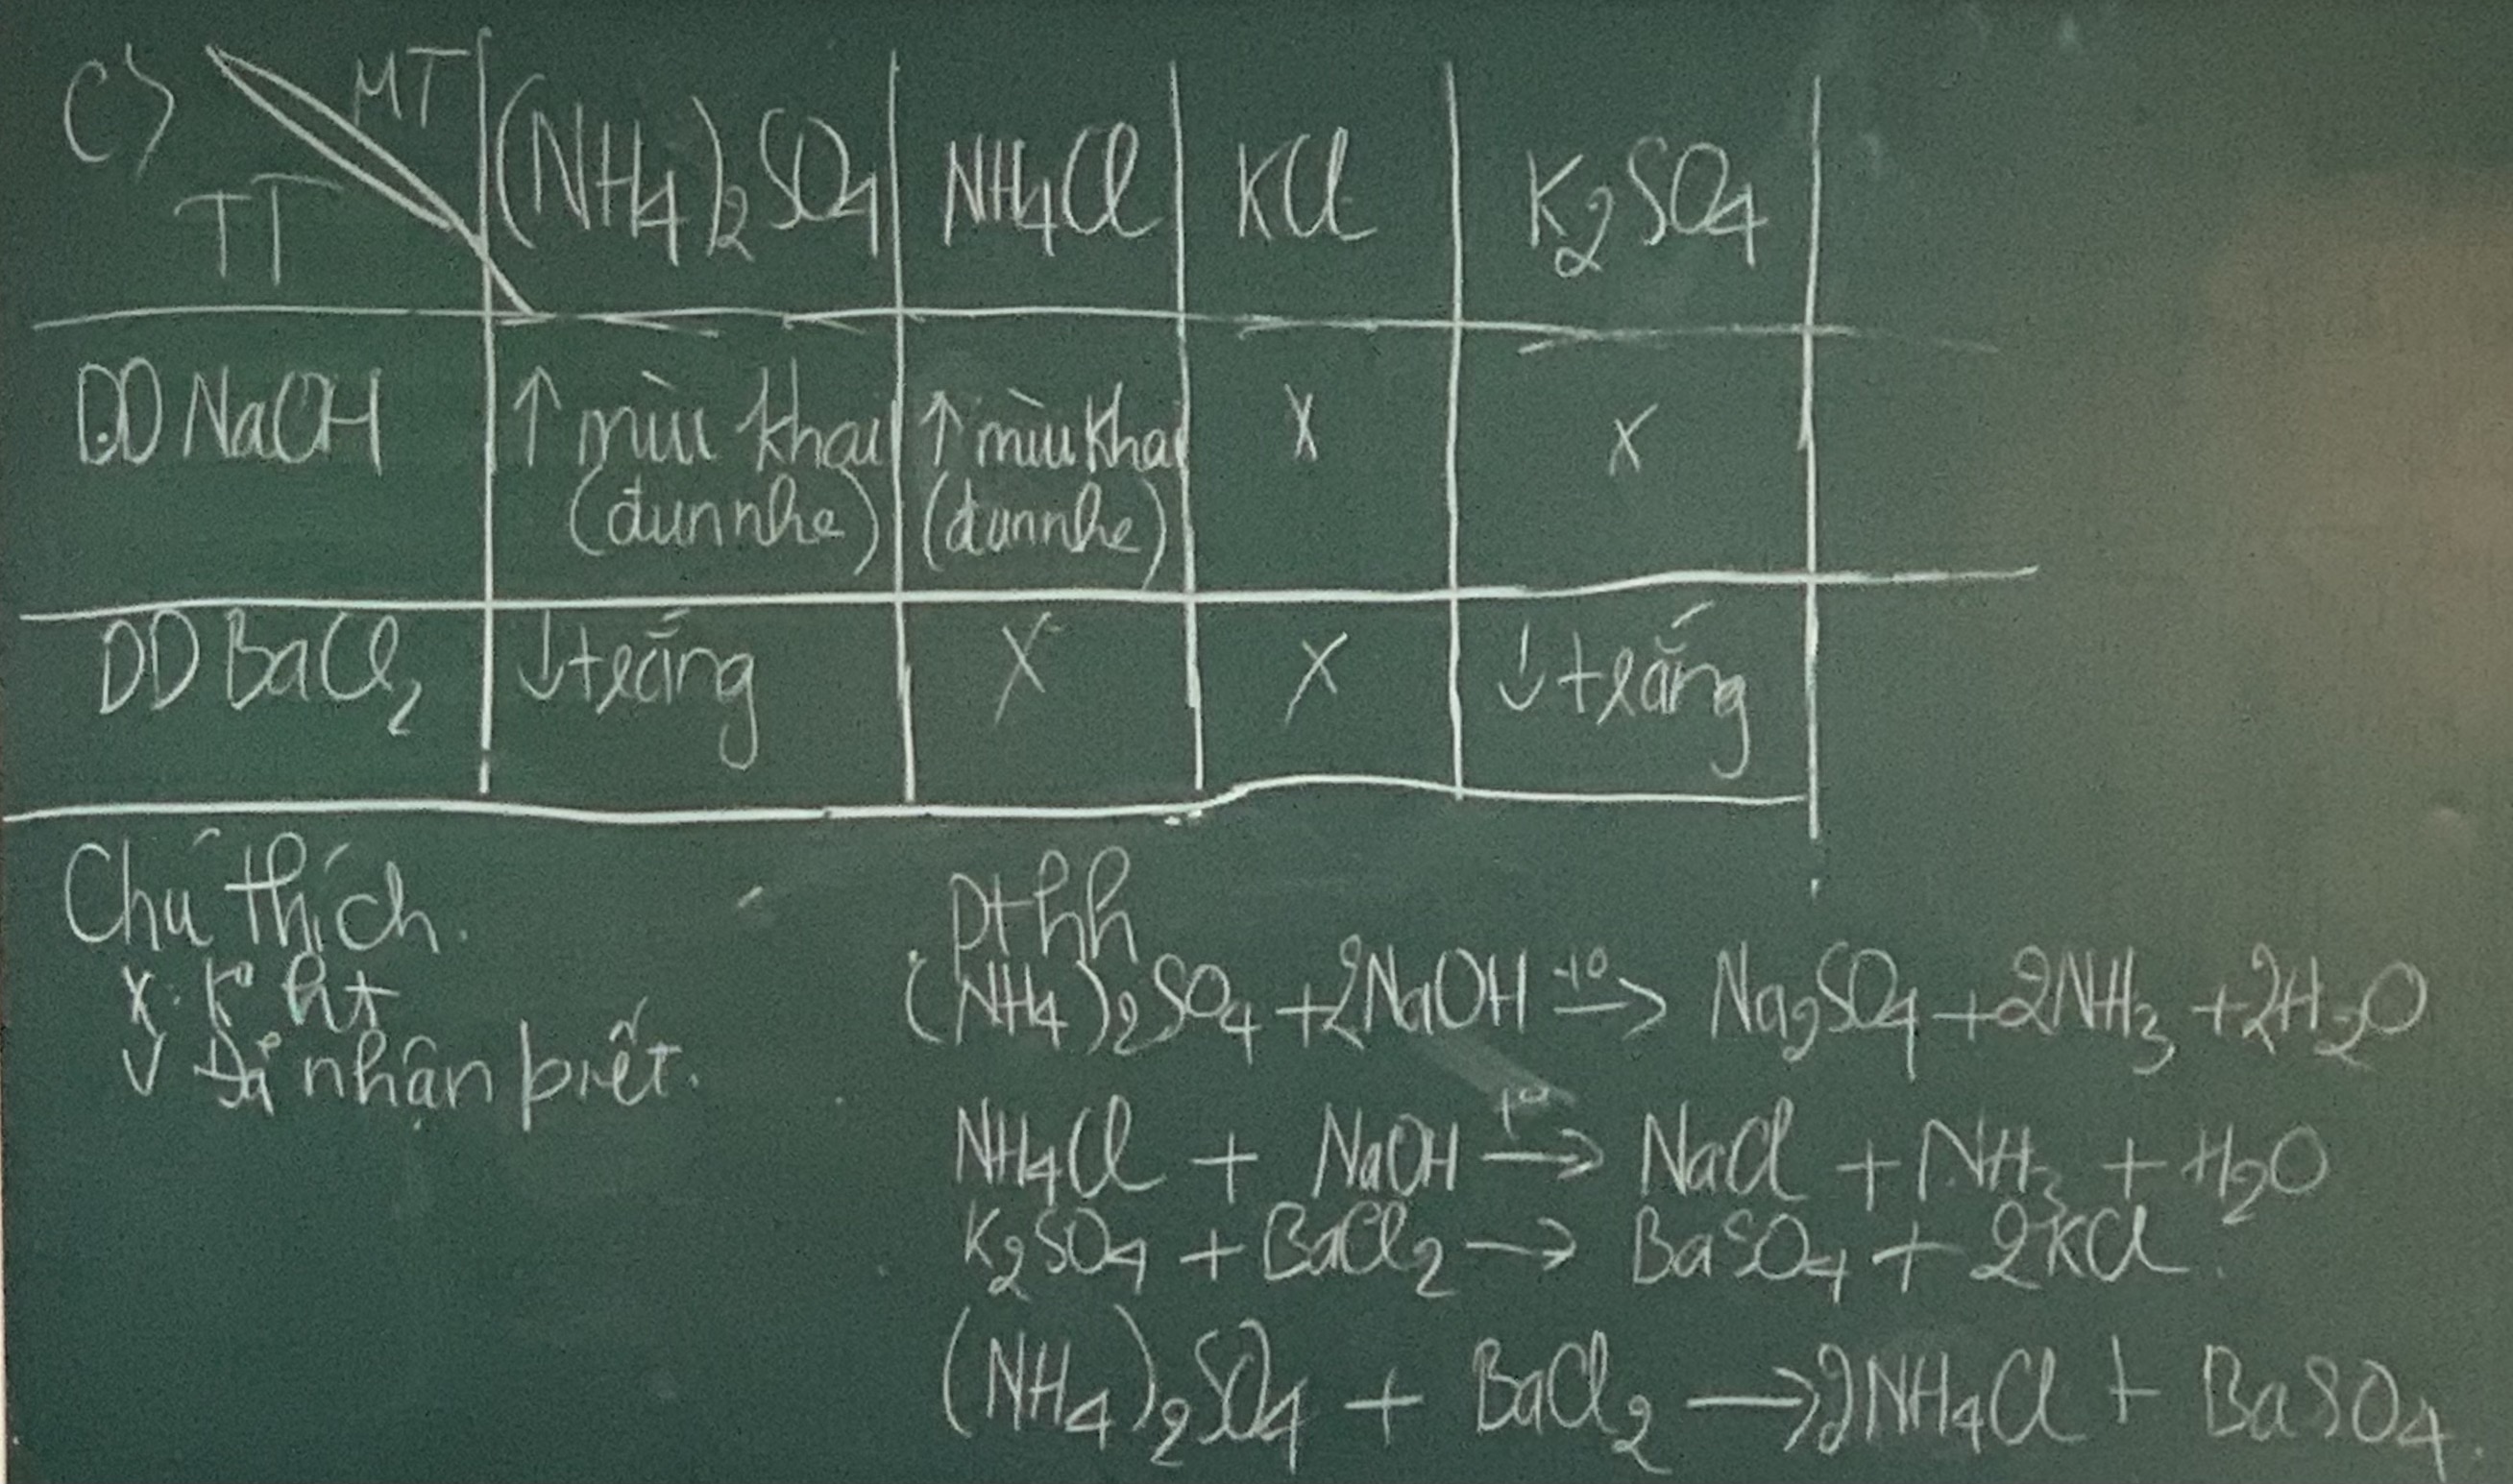 C) MT (NH4)2SO4 NH4Cl KCl K2SO4
TT
DD NaOH ↑ mùi khai ↑ mùi khai X X
(đun nhẹ) (đun nhẹ)
DD BaCl2 ↓ trắng X X ↓ trắng
Chú thích.
X: K° ht
V Đã nhận biết.
pthh
(NH4)2SO4 + 2NaOH t° → Na2SO4 + 2NH3 + 2H2O
NH4Cl + NaOH t° → NaCl + NH3 + H2O
K2SO4 + BaCl2 → BaSO4 + 2KCl.
(NH4)2SO4 + BaCl2 → 2NH4Cl + BaSO4.